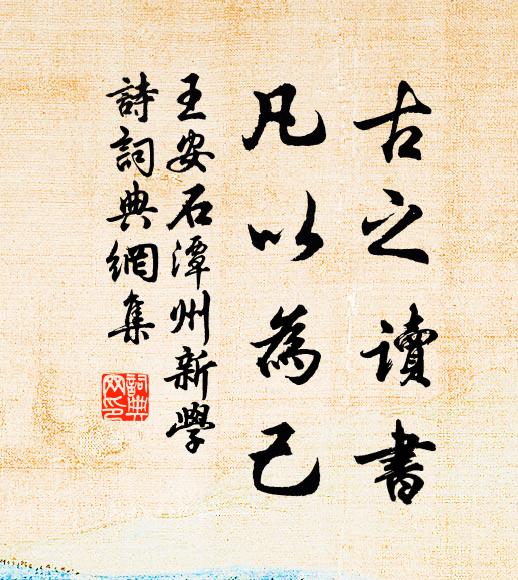 古之讀書
凡以為己
王安石潭州新學
詩詞典網集
詞典
网印